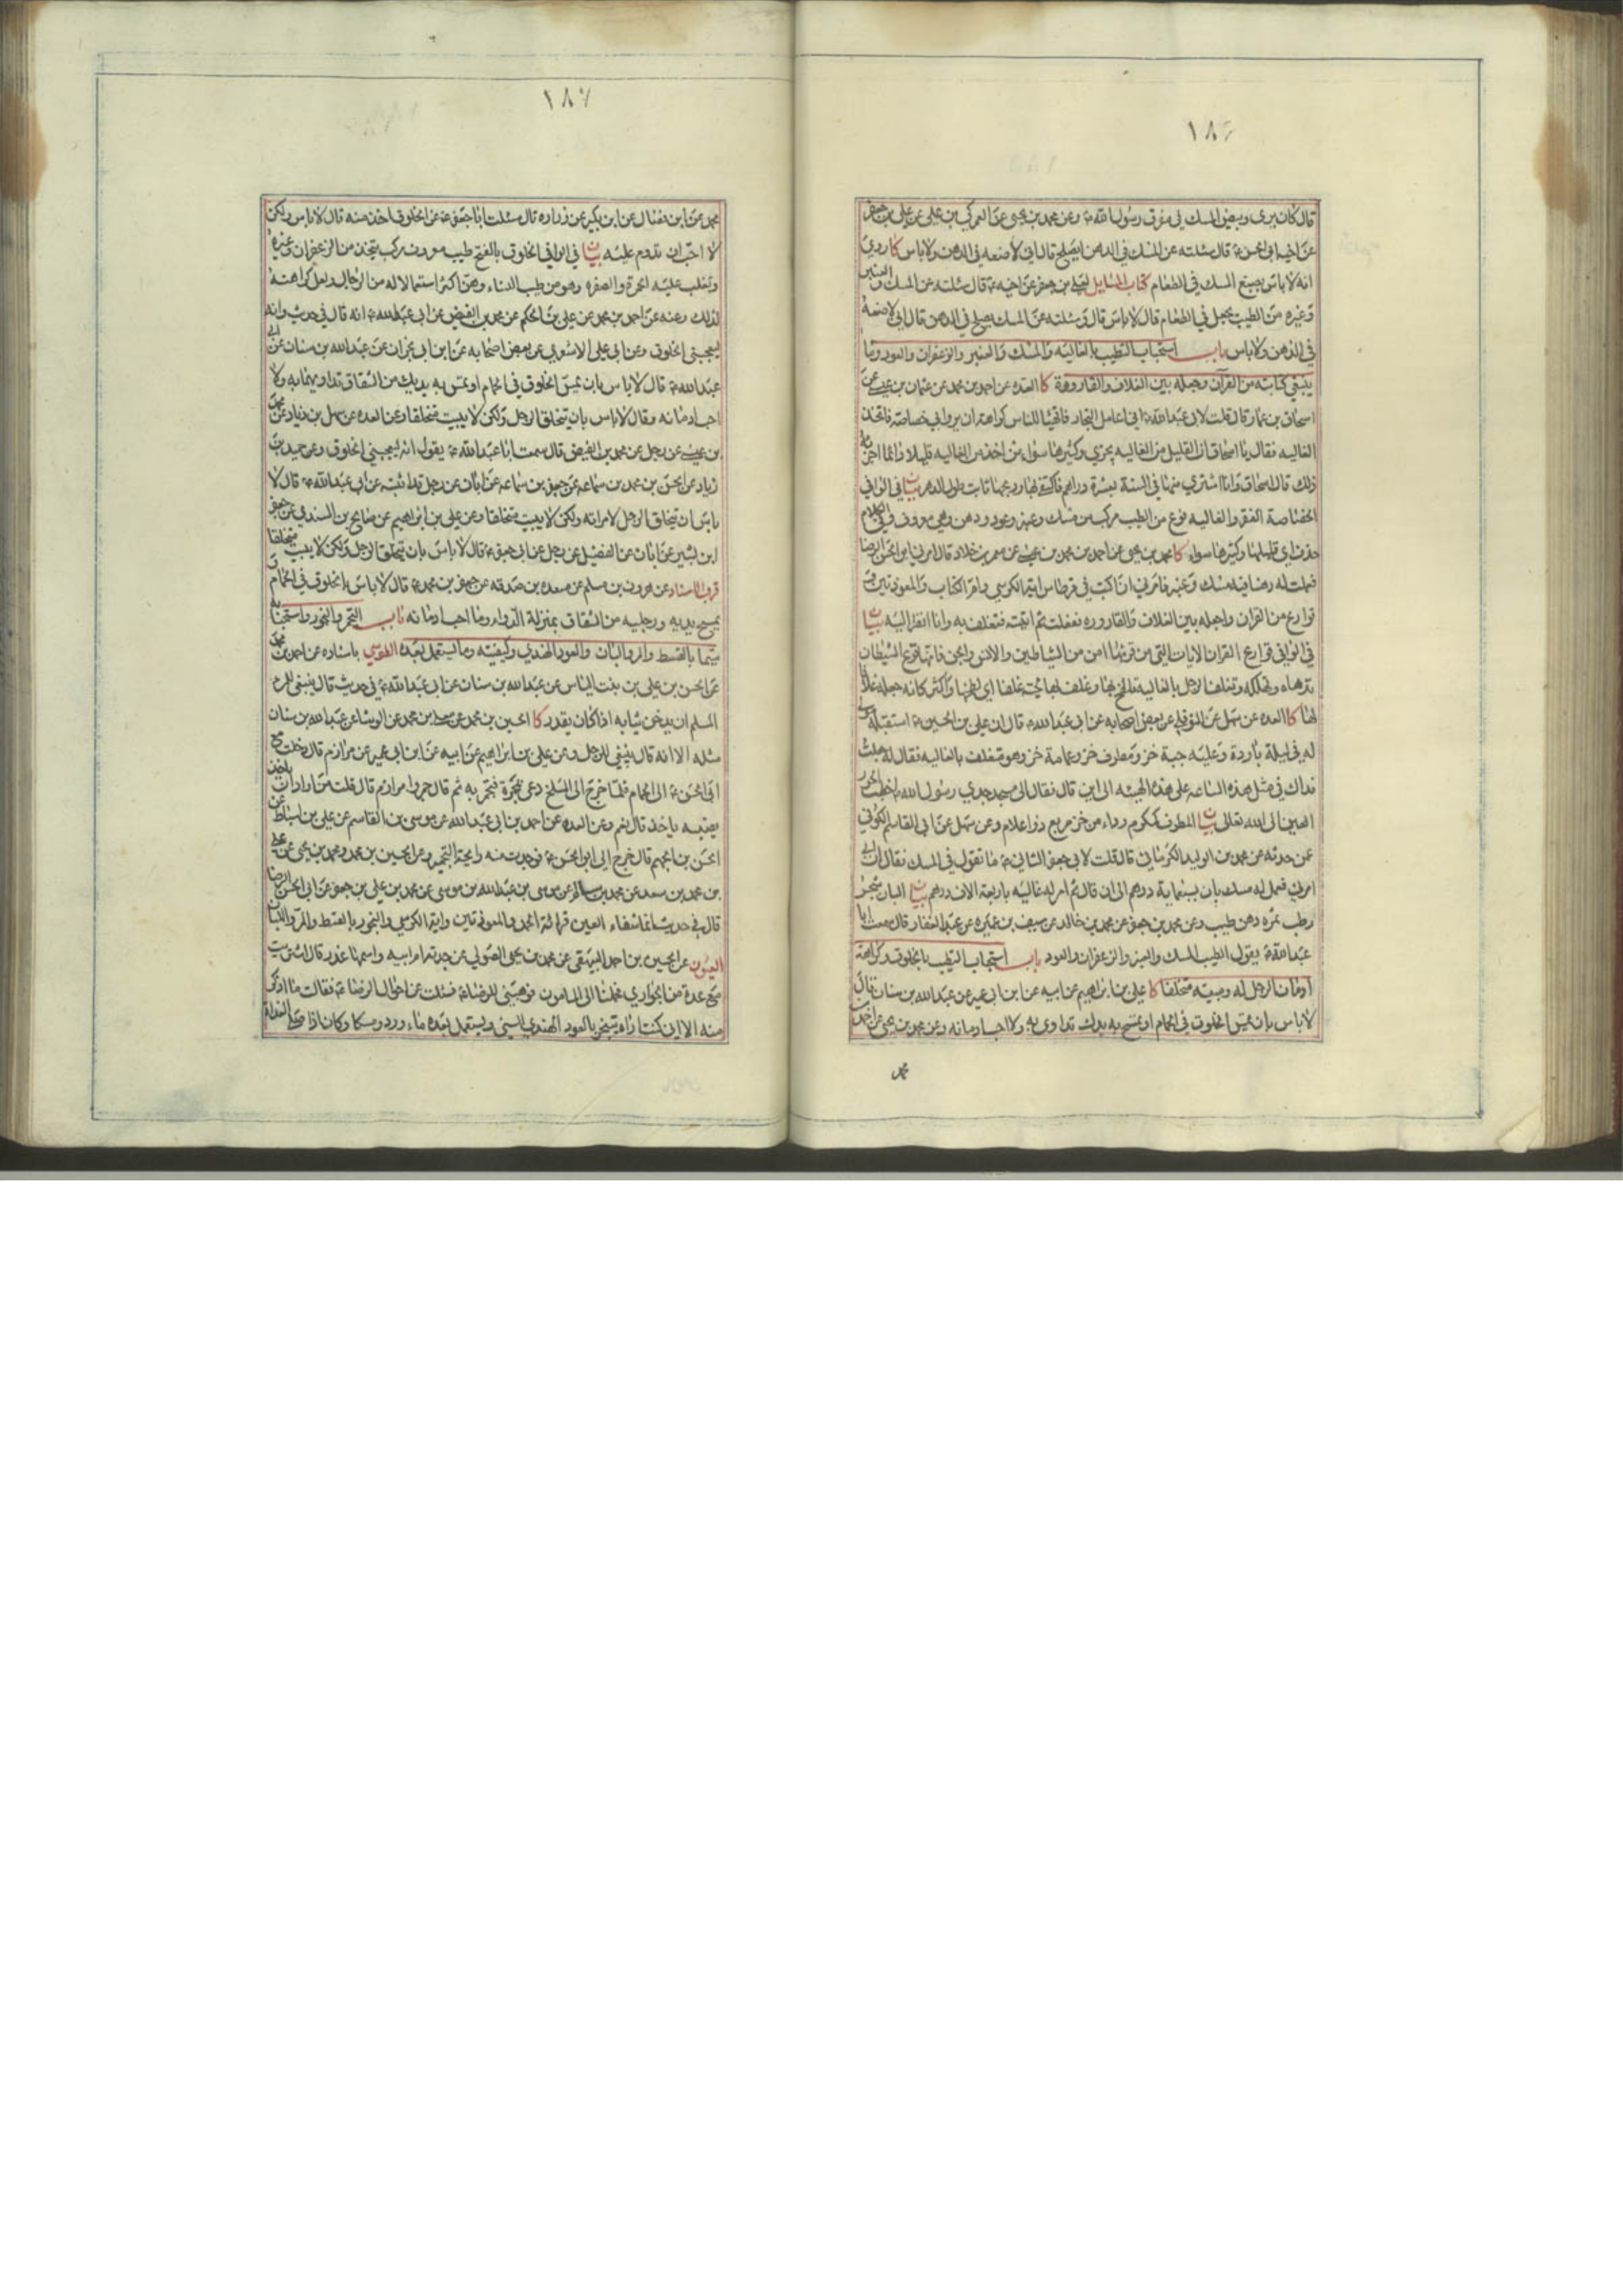 ١٨٦
قال كان يرى وبيض المسك في مفرق رسول الله ص وعن محمد بن يحيى عن العمركي بن علي عن علي بن جعفر
عن اخيه ابي الحسن ع قال سئلته عن المسك في الدهن ايصلح قال اني لاصنعه في الدهن ولا باس كا روي
انه لا باس بصنع المسك في الطعام كتاب المسايل لعلي بن جعفر عن اخيه ع قال سئلته عن المسك والعنبر
وغيره من الطيب يجعل في الطعام قال لا باس قال وسئلته عن المسك يصلح في الدهن قال اني لاصنعه
في الدهن ولا باس باب استحباب التطيب بالغاليه والمسك والعنبر والزعفران والعود وما
ينبغي كتابته من القرآن وجعله بين الغلاف والقاروره كا العده عن احمد بن محمد عن عثمان بن عيسى عن
اسحاق بن عمار قال قلت لابي عبد الله ع اني اعامل التجار فاتهيا للناس كراهة ان يروا بي خصاصة فاتخذ
الغاليه فقال يا اسحاق ان القليل من الغاليه يجزي وكثيرها سواء من اخذ من الغاليه قليلا دائما اجزاه
ذلك قال اسحاق وانا اشتري منها في السنة بعشرة دراهم فاكتفي بها وريحها ثابت طول الدهر بيان في الوافي
الخصاصة الفقر والغاليه نوع من الطيب مركب من مسك وعنبر وعود ودهن وهي معروفة وفي الكلام
حذف اي قليلها وكثيرها سواء كا محمد بن يحيى عن احمد بن محمد بن عيسى عن معمر بن خلاد قال امرني ابو الحسن الرضا
فعملت له دهنا فيه مسك وعنبر فامرني ان اكتب في قرطاس اية الكرسي وام الكتاب والمعوذتين و
قوارع من القران واجعله بين الغلاف والقاروره ففعلت ثم اتيته فتغلف به وانا انظر اليه بيان
في الوافي قوارع القران الايات التي من قرئها امن من الشياطين والانس والجن فانها تقرع الشيطان
لها كا العده عن سهل عن النوفلي عن بعض اصحابه عن ابي عبد الله ع قال ان علي بن الحسين ع استقبله مولى
له في ليلة باردة وعليه جبة خز ومطرف خز وعمامة خز وهو متغلف بالغاليه فقال له جعلت
فداك في مثل هذه الساعه على هذه الهيئه الى اين قال فقال الى مسجد جدي رسول الله ص اخطب الحور
العين الى الله تعالى بيان المطرف كمكرم رداء من خز مربع ذو اعلام وعن سهل عن ابي القاسم الكوفي
عمن حدثه عن محمد بن الوليد الكرماني قال قلت لابي جعفر الثاني ع ما تقول في المسك فقال ان ابي
امر فعمل له مسك بان بسبعماية درهم الى ان قال ثم امر له غاليه باربعة الاف درهم بيان البان شجر
رطب ثمره دهن طيب وعن محمد بن جعفر عن محمد بن خالد عن سيف بن عميره عن عبد الغفار قال سمعت ابا
عبد الله ع يقول الطيب المسك والعنبر والزعفران والعود باب استحباب التطيب بالخلوق وكراهة
ادمان الرجل له ومبيته متخلقا كا علي بن ابراهيم عن ابيه عن ابن ابي عمير عن عبد الله بن سنان قال
لا باس بان تمس الخلوق في الحمام او تمسح به يدك تداوى به ولا احب ادمانه وعن محمد بن يحيى عن احمد بن
محمد
١٨٧
محمد عن ابن فضال عن ابن بكير عن زراره قال سئلت ابا جعفر ع عن الخلوق اخذ منه قال لا باس ولكن
لا احب ان تدوم عليه بيان في الوافي الخلوق بالفتح طيب معروف مركب يتخذ من الزعفران وغيره
وتغلب عليه الحمرة والصفره وهو من طيب النساء وهن اكثر استعمالا له من الرجال ولعل كراهته
لذلك وعنه عن احمد بن محمد عن علي بن الحكم عن محمد بن الفيض عن ابي عبد الله ع انه قال في حديث وانه
ليعجبني الخلوق وعن ابي علي الاشعري عن بعض اصحابه عن ابن ابي نجران عن عبد الله بن سنان عن ابي
عبد الله ع قال لا باس بان تمس الخلوق في الحمام او تمس به يديك من الشقاق تداويهما به ولا
احب ادمانه وقال لا باس بان يتخلق الرجل ولكن لا يبيت متخلقا وعن العده عن سهل بن زياد عن محمد
بن عيسى عن رجل عن محمد بن الفيض قال سمعت ابا عبد الله ع يقول انه ليعجبني الخلوق وعن حميد بن
زياد عن الحسن بن محمد بن سماعه عن جعفر بن سماعه عن ابان عن رجل قد اثبته عن ابي عبد الله ع قال لا
باس ان يتخلق الرجل لامراته ولكن لا يبيت متخلقا وعن علي بن ابراهيم عن صالح بن السندي عن جعفر
ابن بشير عن ابان عن الفضيل عن رجل عن ابي جعفر ع قال لا باس بان يتخلق الرجل ولكن لا يبيت متخلقا
قرب الاسناد عن هرون بن مسلم عن مسعده بن صدقه عن جعفر بن محمد ع قال لا باس بالخلوق في الحمام و
يمسح يديه ورجليه من الشقاق بمنزلة الدواء وما احب ادمانه باب التجمر والبخور واستحبابه
سيما بالقسط والمر واللبان والعود الهندي وكيفيته وما يستعمل بعده الطوسي باسناده عن احمد بن محمد
عن الحسن بن علي بن بنت الياس عن عبد الله بن سنان عن ابي عبد الله ع في حديث قال ينبغي للمرء
المسلم ان يدخن ثيابه اذا كان يقدر كا الحسين بن محمد عن معلى بن محمد عن الوشا عن عبد الله بن سنان
مثله الا انه قال ينبغي للرجل وعن علي بن ابراهيم عن ابيه عن ابن ابي عمير عن مرازم قال دخلت مع
ابي الحسن ع الى الحمام فلما خرج الى المسلخ دعى بمجمرة فتجمر به ثم قال جمروا مرازم قال قلت من اراد ان ياخذ
نصيبه ياخذ قال نعم وعن العده عن احمد بن ابي عبد الله عن موسى بن القاسم عن علي بن اسباط عن
الحسن بن الجهم قال خرج الي ابو الحسن ع فوجدت منه رايحة التجمير وعن الحسين بن محمد ومحمد بن يحيى عن علي
بن محمد بن سعد عن محمد بن سالم عن موسى بن عبد الله بن موسى عن محمد بن علي بن جعفر عن ابي الحسن الرضا
قال في حديث انما شفاء العين قرائة الحمد والمعوذتين واية الكرسي والبخور بالقسط والمر واللبان
العيون عن الحسين بن احمد البيهقي عن محمد بن يحيى الصولي عن جدته ام ابيه واسمها غدر قال اشتريت
مع عدة من الجواري فحملنا الى المامون فوهبني للرضا ع فسئلت عن احوال الرضا ع فقالت ما اذكر
منه الا اني كنت اراه يتبخر بالعود الهندي السني ويستعمل بعده ماء ورد ومسكا وكان اذا صلى الغداة